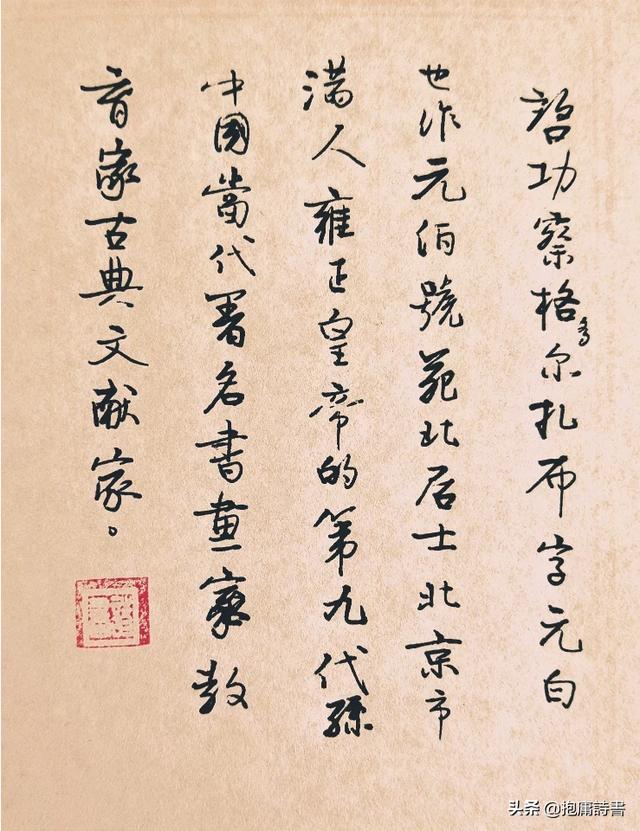 啓功察格多尔扎布字元白
也作元伯號苑北居士北京市
满人雍正皇帝的第九代孫
中國當代著名書畫家教
育家古典文献家。
头条 @抱庸詩書